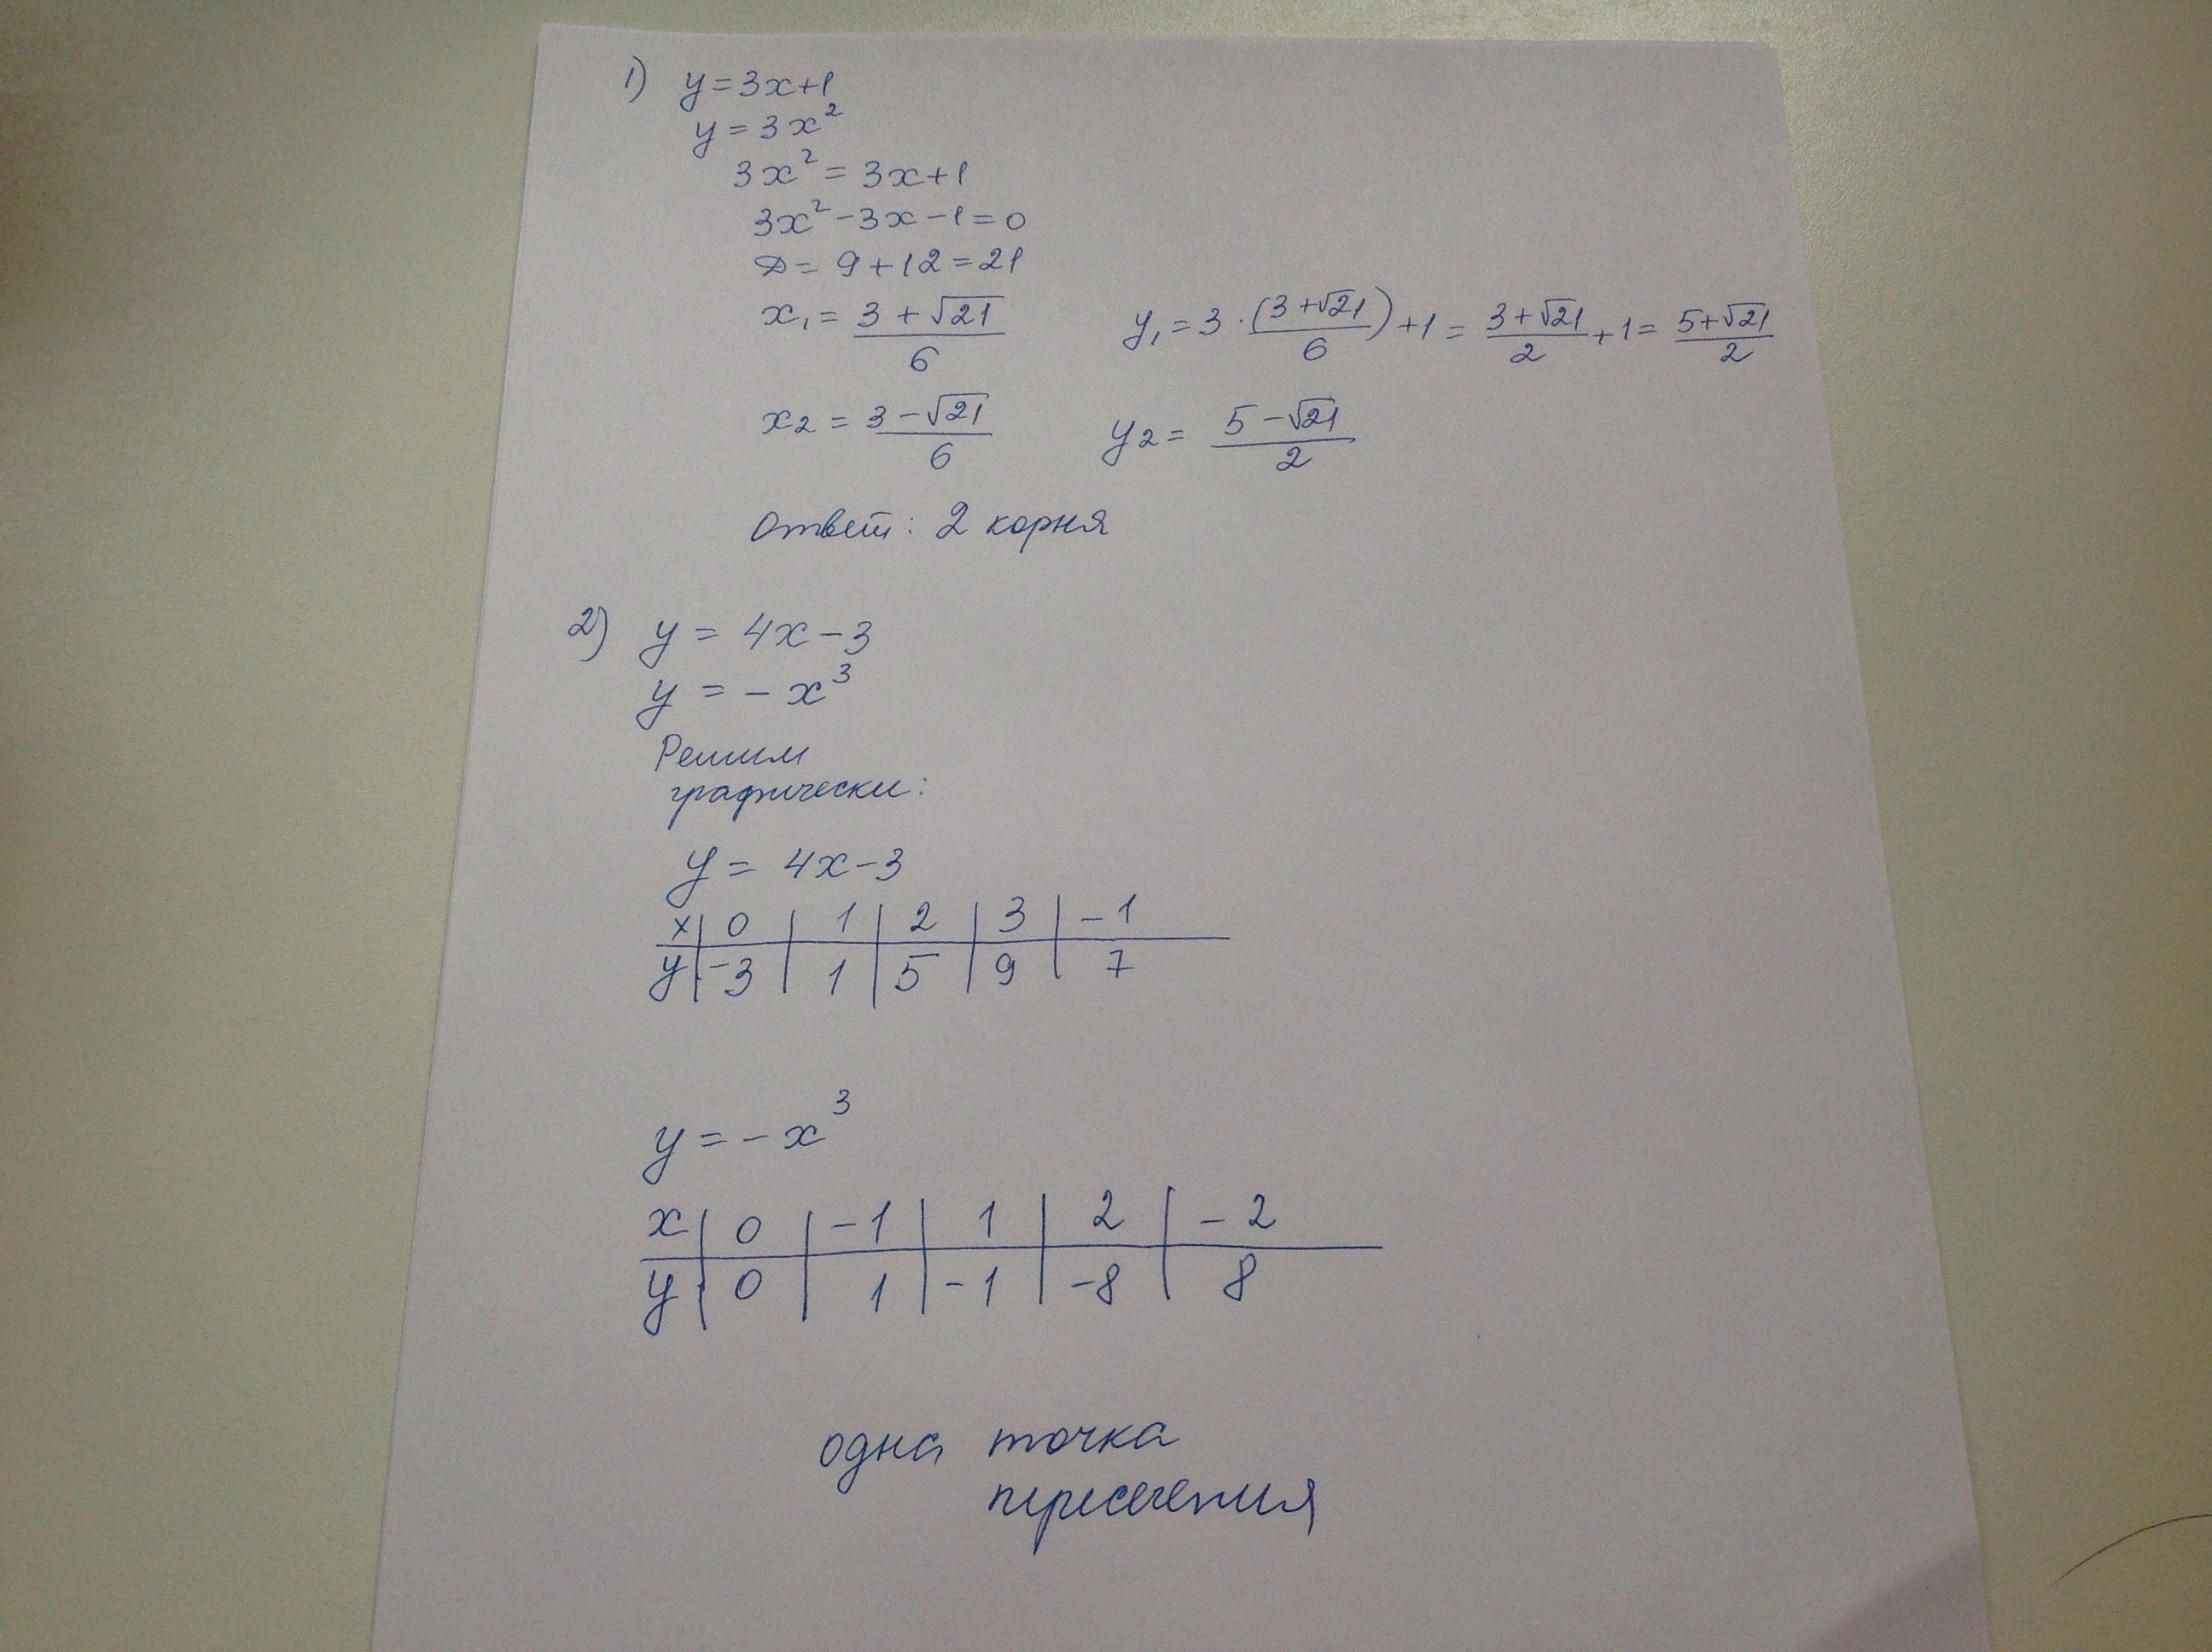 1) y=3x+1
y=3x²
3x²=3x+1
3x²-3x-1=0
D=9+12=21
x₁=(3+√21)/6 y₁=3·(3+√21)/6)+1=(3+√21)/2+1=(5+√21)/2
x₂=(3-√21)/6 y₂=(5-√21)/2
Ответ: 2 корня
2) y=4x-3
y=-x³
Решим
графически:
y=4x-3
x | 0 | 1 | 2 | 3 | -1
y | -3 | 1 | 5 | 9 | 7
y=-x³
x | 0 | -1 | 1 | 2 | -2
y | 0 | 1 | -1 | -8 | 8
одна точка
пересечения